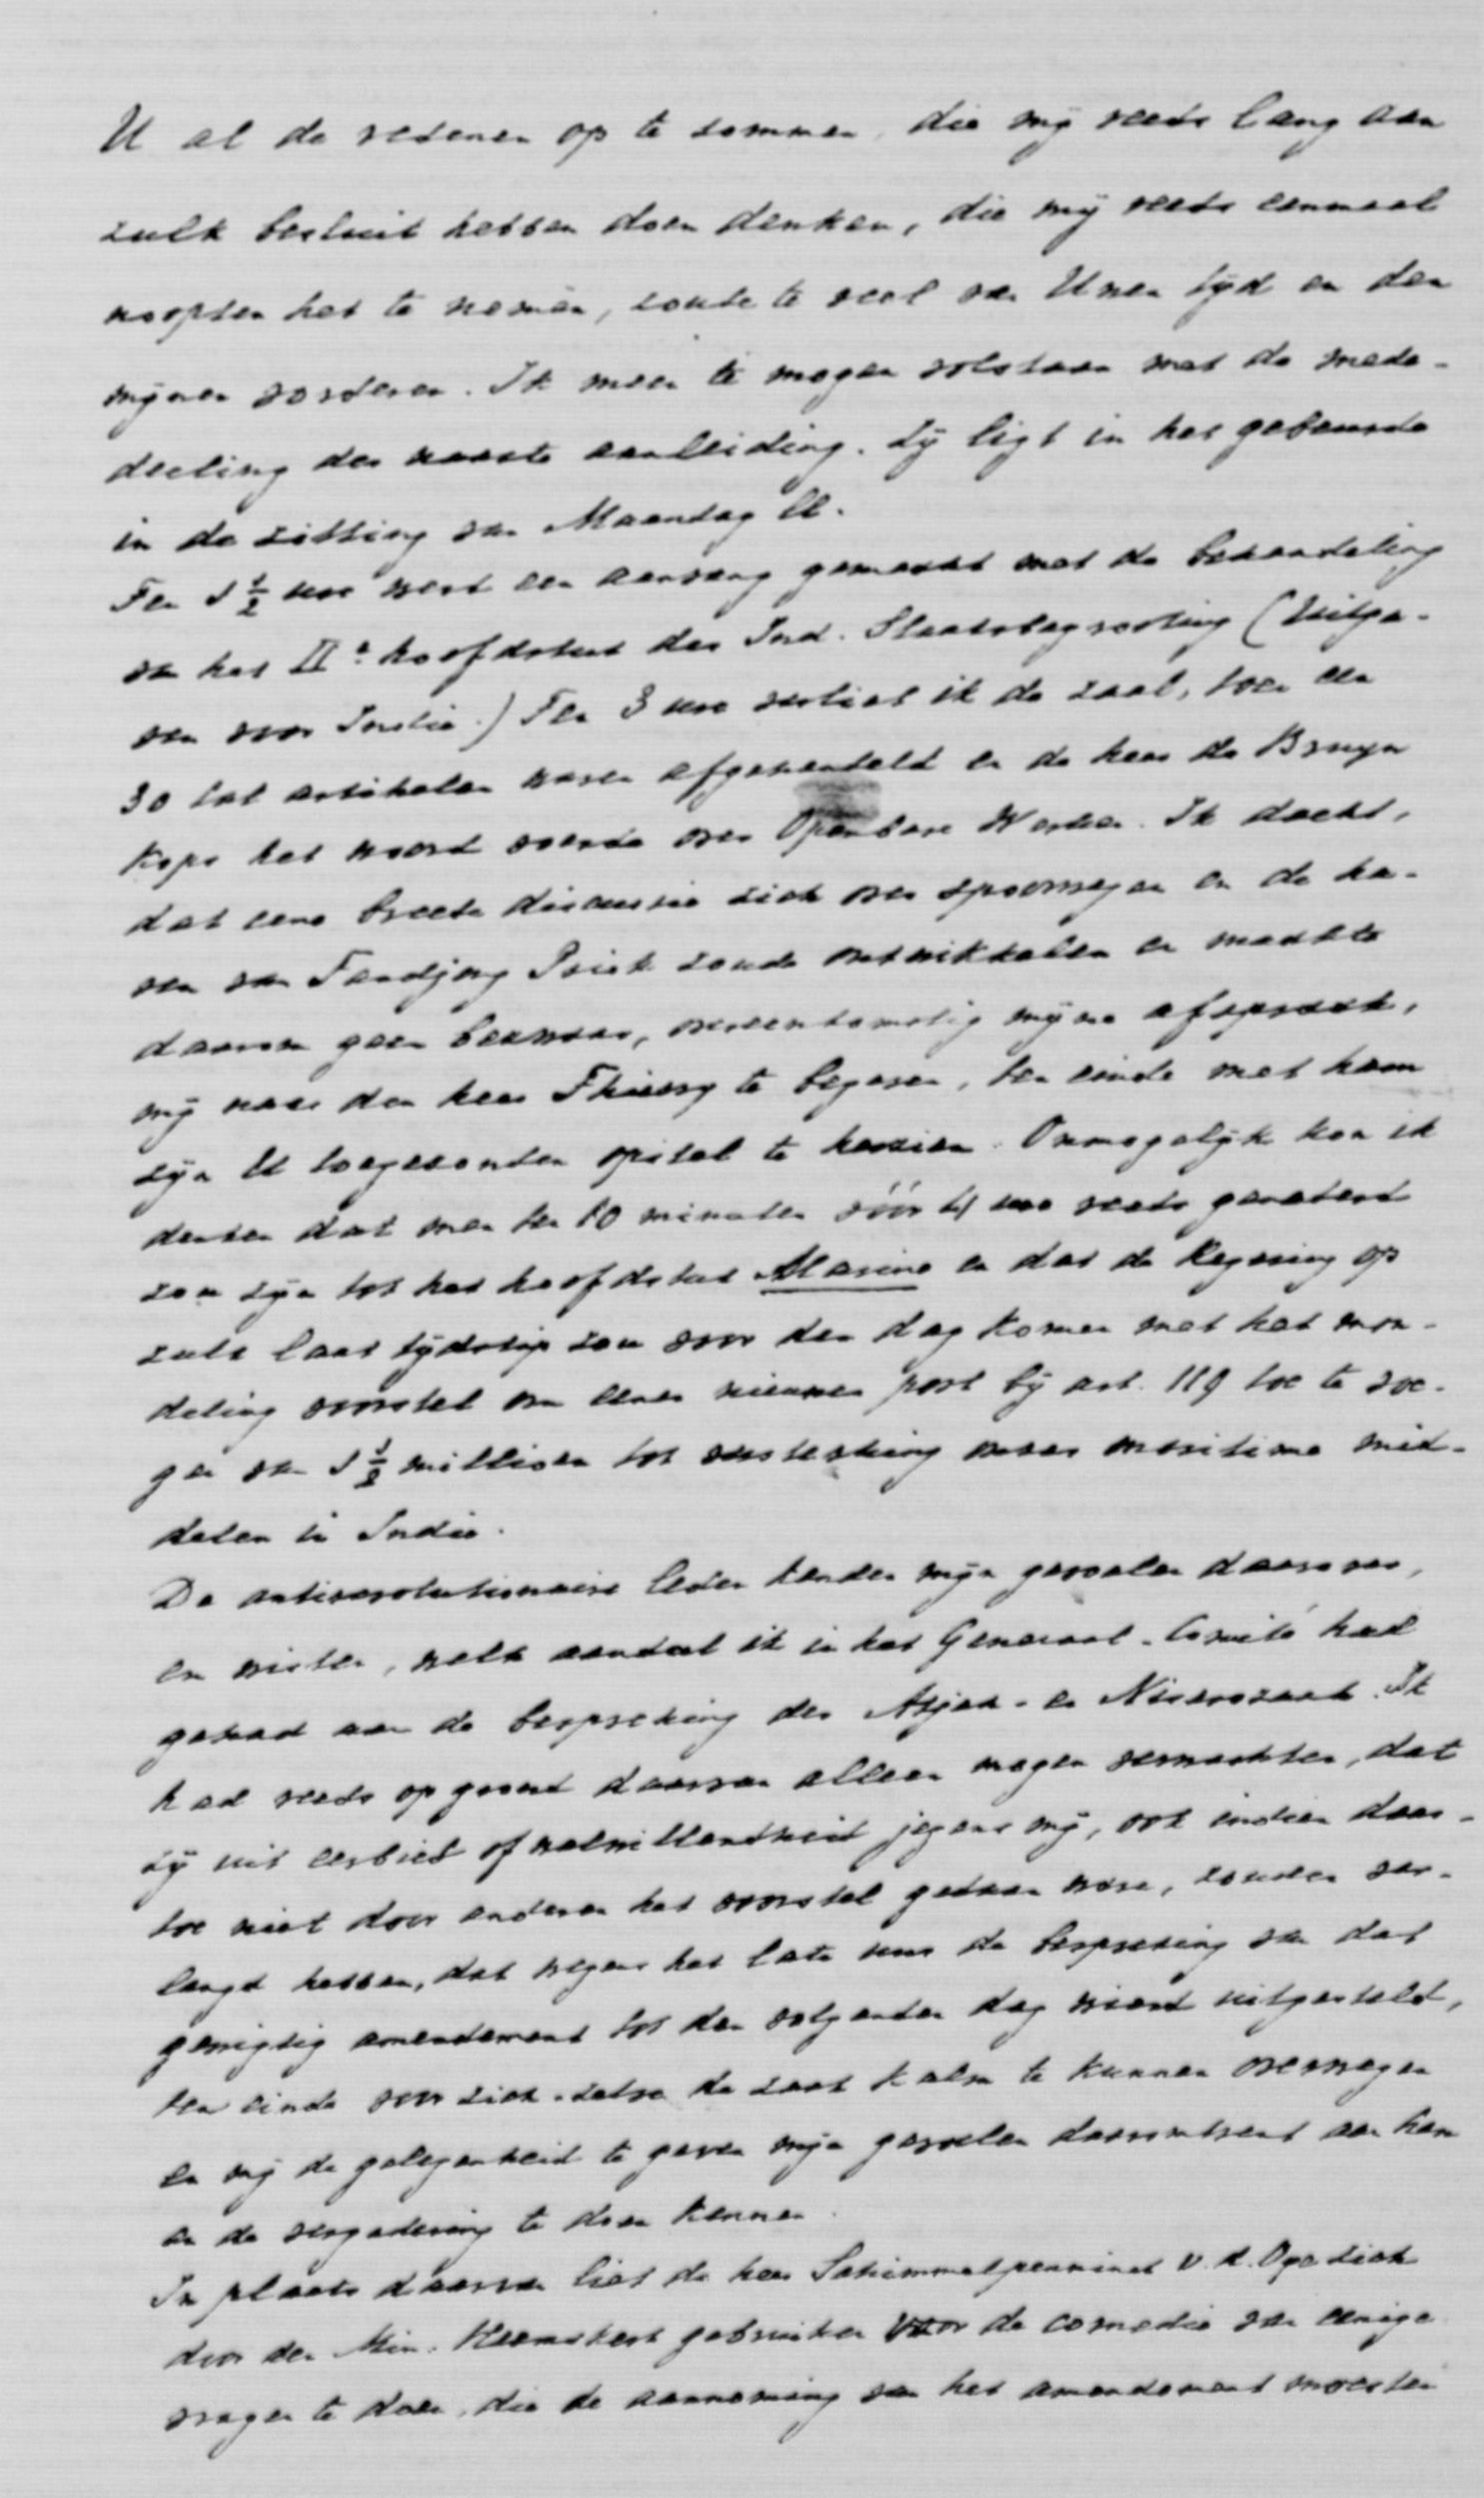 U al de redenen op te sommen, die mij reeds lang aan
zulk besluit hebben doen denken, die mij reeds eenmaal
noopten het te nemen, zoude te veel van Uwen tijd en den
mijnen vorderen. Ik meen te mogen volstaan met de mede-
deeling der naaste aanleiding. Zij ligt in het gebeurde
in de zitting van Maandag ll.
Ten 1 1/2 ure werd een aanvang gemaakt met de behandeling
van het IIe hoofdstuk der Ind. Staatsbegrooting (Uitga-
ven voor Indië.) Ten 3 ure verliet ik de zaal, toen een
30 tal artikelen waren afgehandeld en de heer de Bruyn
Kops het woord voerde over Openbare Werken. Ik dacht,
dat eene breede discussie zich over spoorwegen en de ha-
ven van Tandjong Priok zoude ontwikkelen en maakte
daarom geen bezwaar, overeenkomstig mijne afspraak,
mij naar den heer Thierry te begeven, ten einde met hem
zijn U toegezonden opstel te herzien. Onmogelijk kon ik
denken dat men ten 10 minuten vóór 4 ure reeds genaderd
zou zijn tot het hoofdstuk Marine en dat de Regering op
zulk laat tijdstip zou voor den dag komen met het mon-
deling voorstel om eenen nieuwen post bij art. 119 toe te voe-
gen van 1 1/2 millioen tot versterking onzer maritime mid-
delen in Indië.
De antirevolutionaire leden kenden mijn gevoelen daarover,
en wisten, welk aandeel ik in het Generaal-Comité had
gehad aan de bespreking der Atjeh- en Niserozaak. Ik
had reeds op grond daarvan alleen mogen verwachten, dat
zij uit eerbied of welwillendheid jegens mij, ook indien daar-
toe niet door anderen het voorstel gedaan ware, zouden ver-
langd hebben, dat wegens het late uur de bespreking van dat
gewigtig amendement tot den volgenden dag wierd uitgesteld,
ten einde voor zich-zelve de zaak kalm te kunnen overwegen
en mij de gelegenheid te geven mijn gevoelen daaromtrent aan hen
en de vergadering te doen kennen.
In plaats daarvan liet de heer Schimmelpenninck v. d. Oye zich
door den Min. Heemskerk gebruiken voor de comedie van eenige
vragen te doen, die de aanneming van het amendement moesten